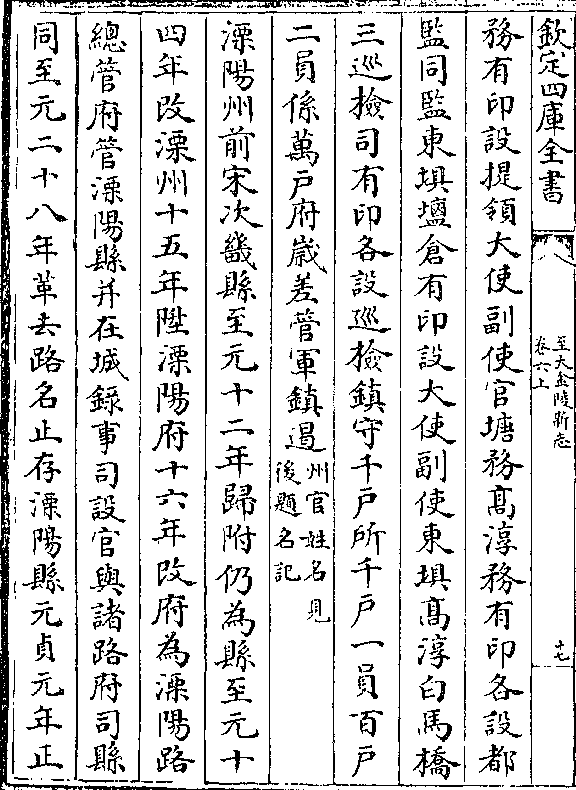 欽定四庫全書
至大金陵新志
卷六上
十七
務有印設提領大使副使官塘務髙淳務有印各設都
監同監東垻壇倉有印設大使副使東垻髙淳白馬橋
三巡檢司有印各設巡檢鎮守千戸所千戸一員百戸
二員係萬戸府嵗差管軍鎮遏州官姓名見
後題名記
溧陽州前宋次畿縣至元十二年歸附仍為縣至元十
四年改溧州十五年陞溧陽府十六年改府為溧陽路
總管府管溧陽縣并在城録事司設官與諸路府司縣
同至元二十八年革去路名止存溧陽縣元貞元年正